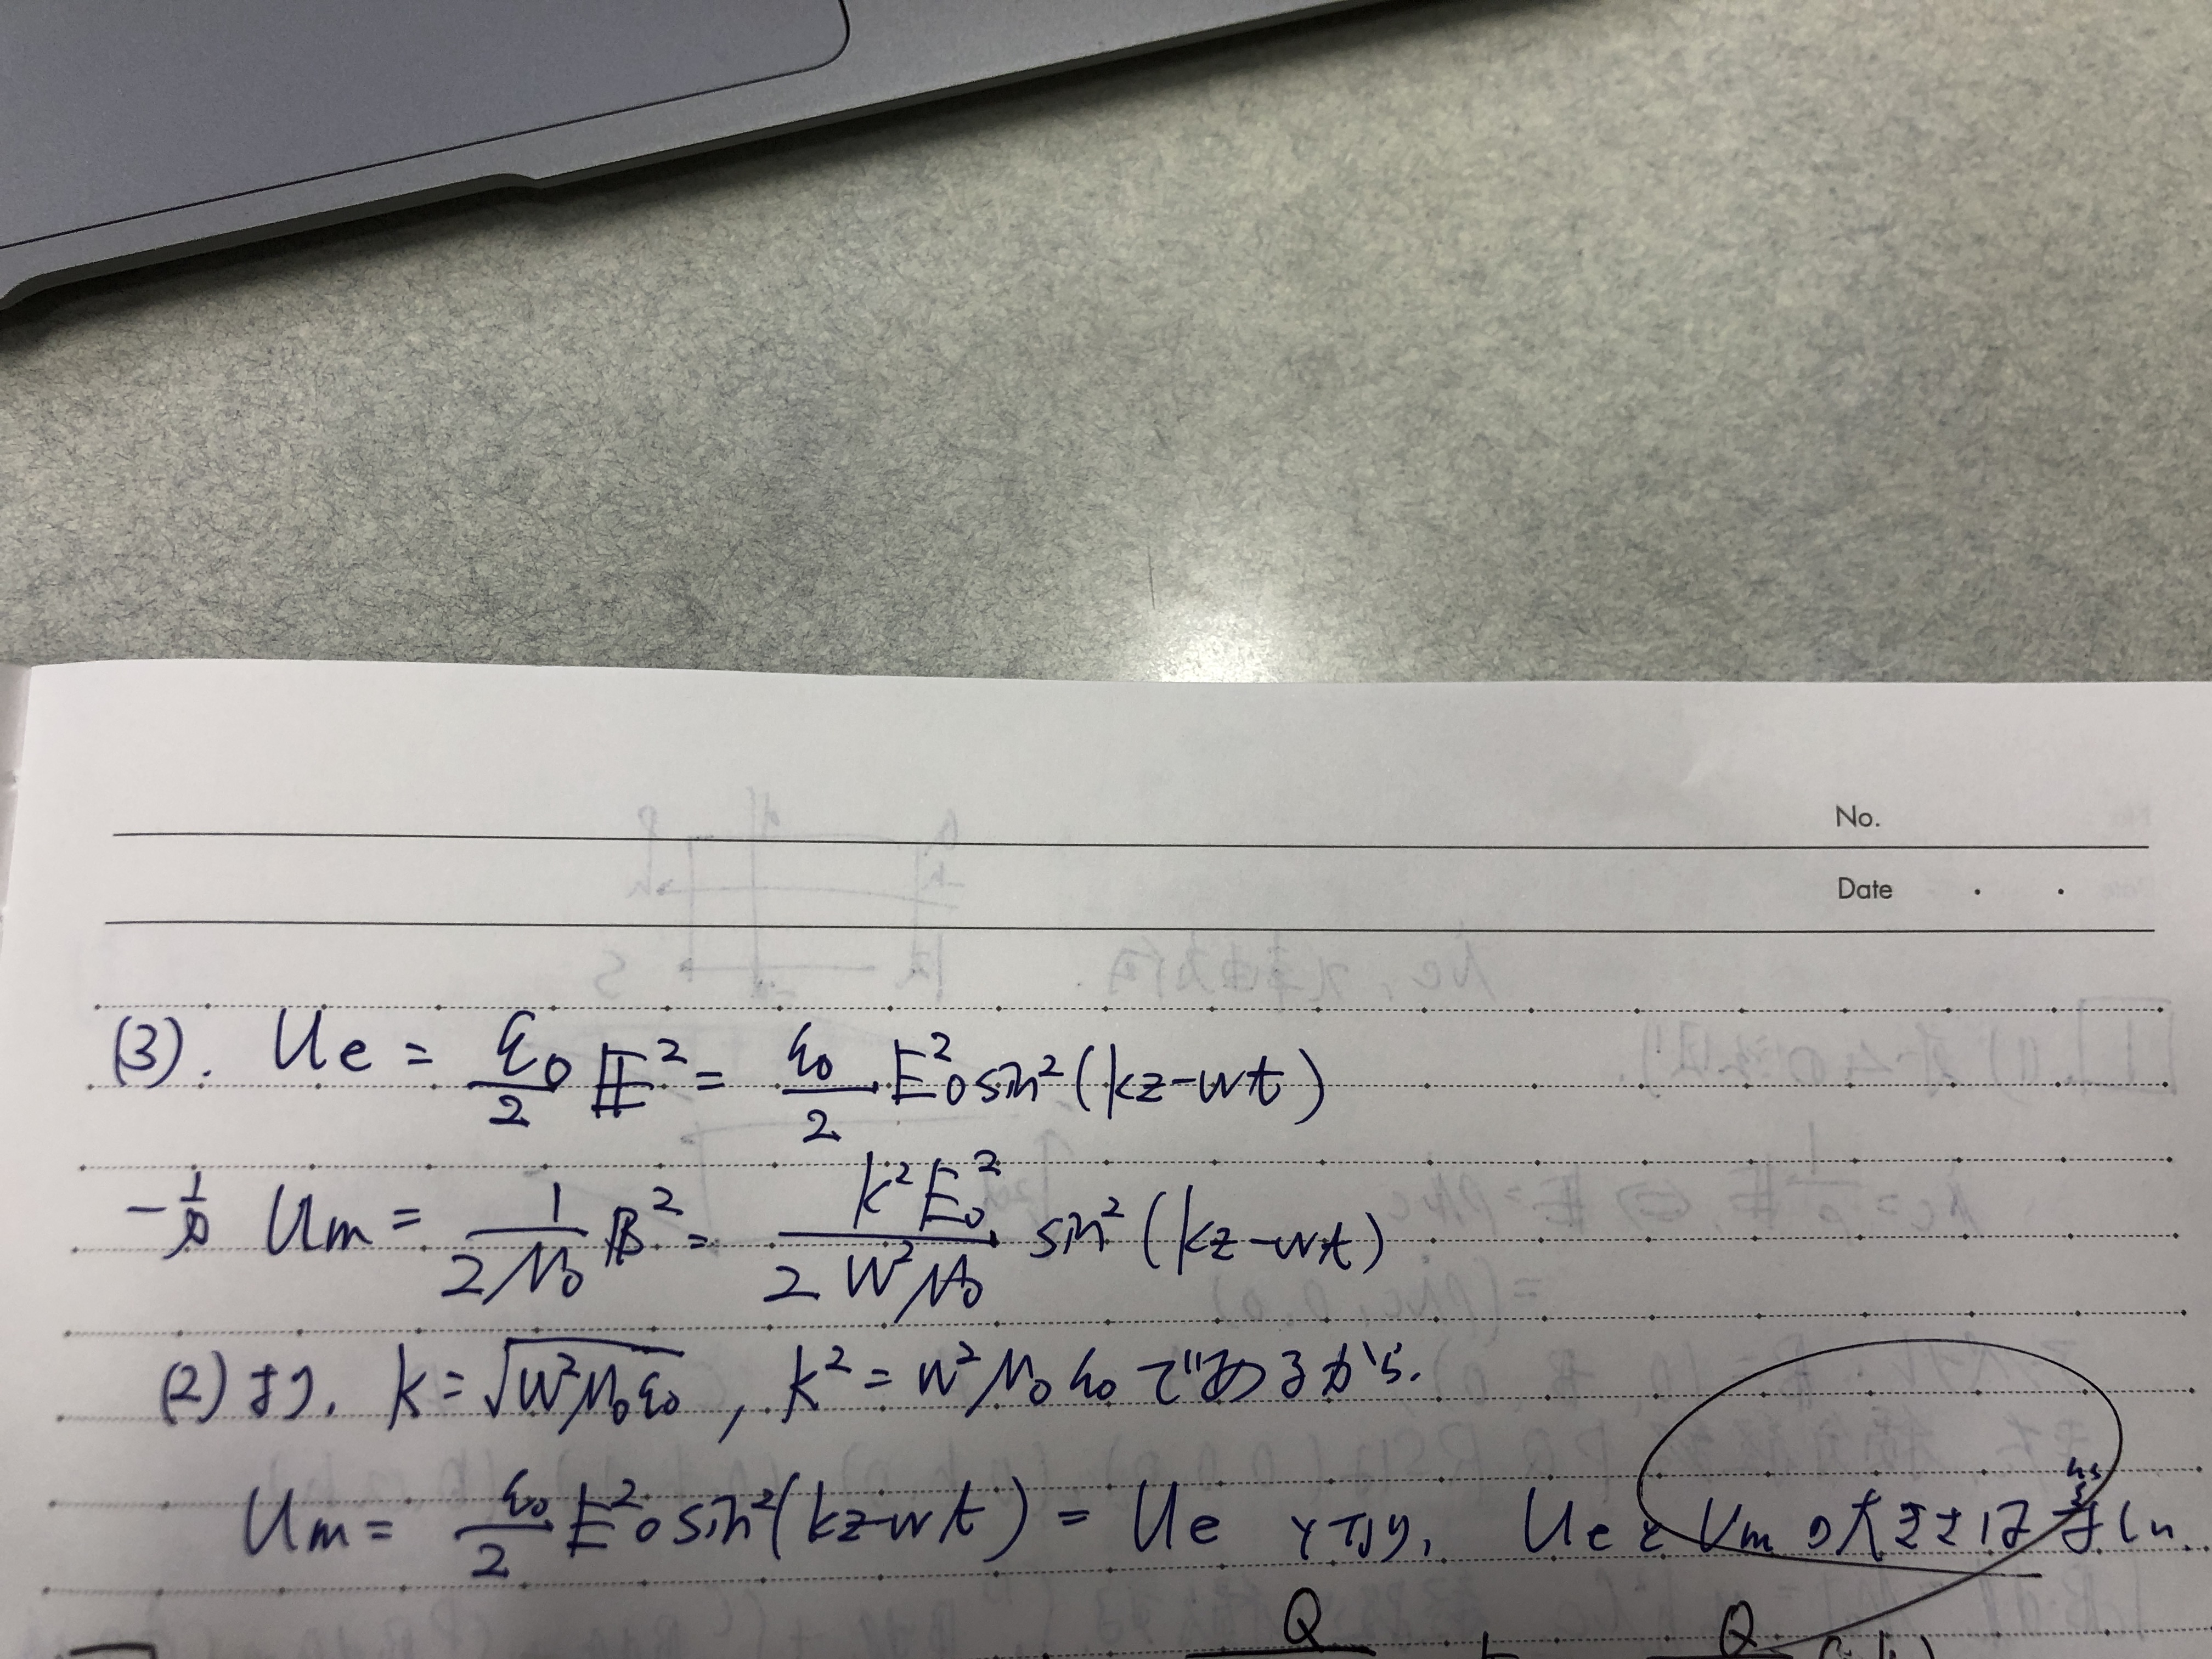 No.
Date . .
(3). Ue = ε₀/2 𝔼² = ε₀/2 E₀² sin²(kz-wt)
Um = 1/2μ₀ 𝔹² = k²E₀²/2w²μ₀ sin²(kz-wt)
(2)より, k = √w²μ₀ε₀ , k² = w²μ₀ε₀ であるから.
Um = ε₀/2 E₀² sin²(kz-wt) = Ue となり, UeとUmの大きさは等しい
Q Q